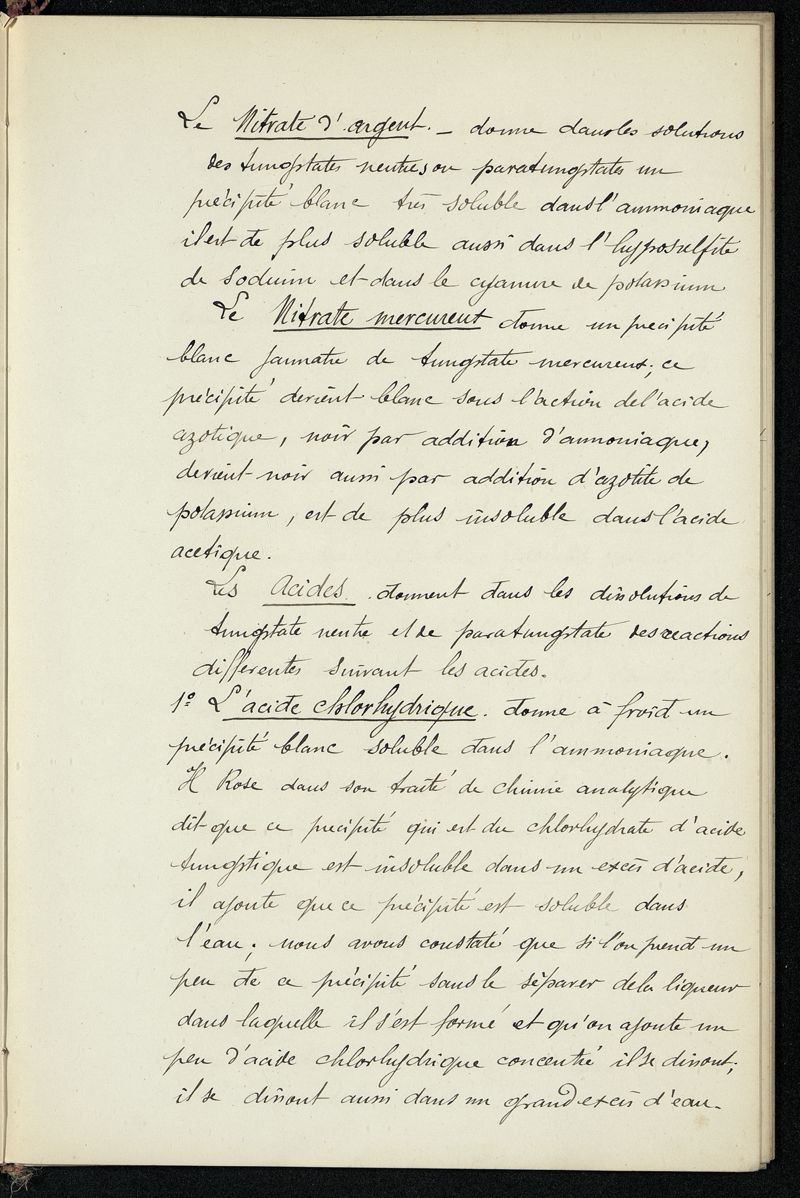 Le Nitrate d'argent. – donne dans les solutions
des tungstates neutres ou paratungstates un
précipité blanc très soluble dans l'ammoniaque
il est de plus soluble aussi dans l'hyposulfite
de sodium et dans le cyanure de potassium
Le Nitrate mercureux donne un precipité
blanc jaunatre de tungstate mercureux; ce
précipité devient blanc sous l'action de l'acide
azotique, noir par addition d'ammoniaque,
devient noir aussi par addition d'azotite de
potassium, est de plus insoluble dans l'acide
acetique.
Les Acides. donnent dans les dissolutions de
tungstate neutre et de paratungstate des reactions
differentes suivant les acides.
1º L'acide chlorhydrique. donne à froid un
précipité blanc soluble dans l'ammoniaque.
H Rose dans son traité de chimie analytique
dit que ce precipité qui est du chlorhydrate d'acide
tungstique est insoluble dans un excès d'acide,
il ajoute que ce précipité est soluble dans
l'eau; nous avons constaté que si l'on prend un
peu de ce précipité sans le séparer de la liqueur
dans laquelle il s'est formé et qu'on ajoute un
peu d'acide chlorhydrique concentré il se dissout;
il se dissout aussi dans un grand excès d'eau.